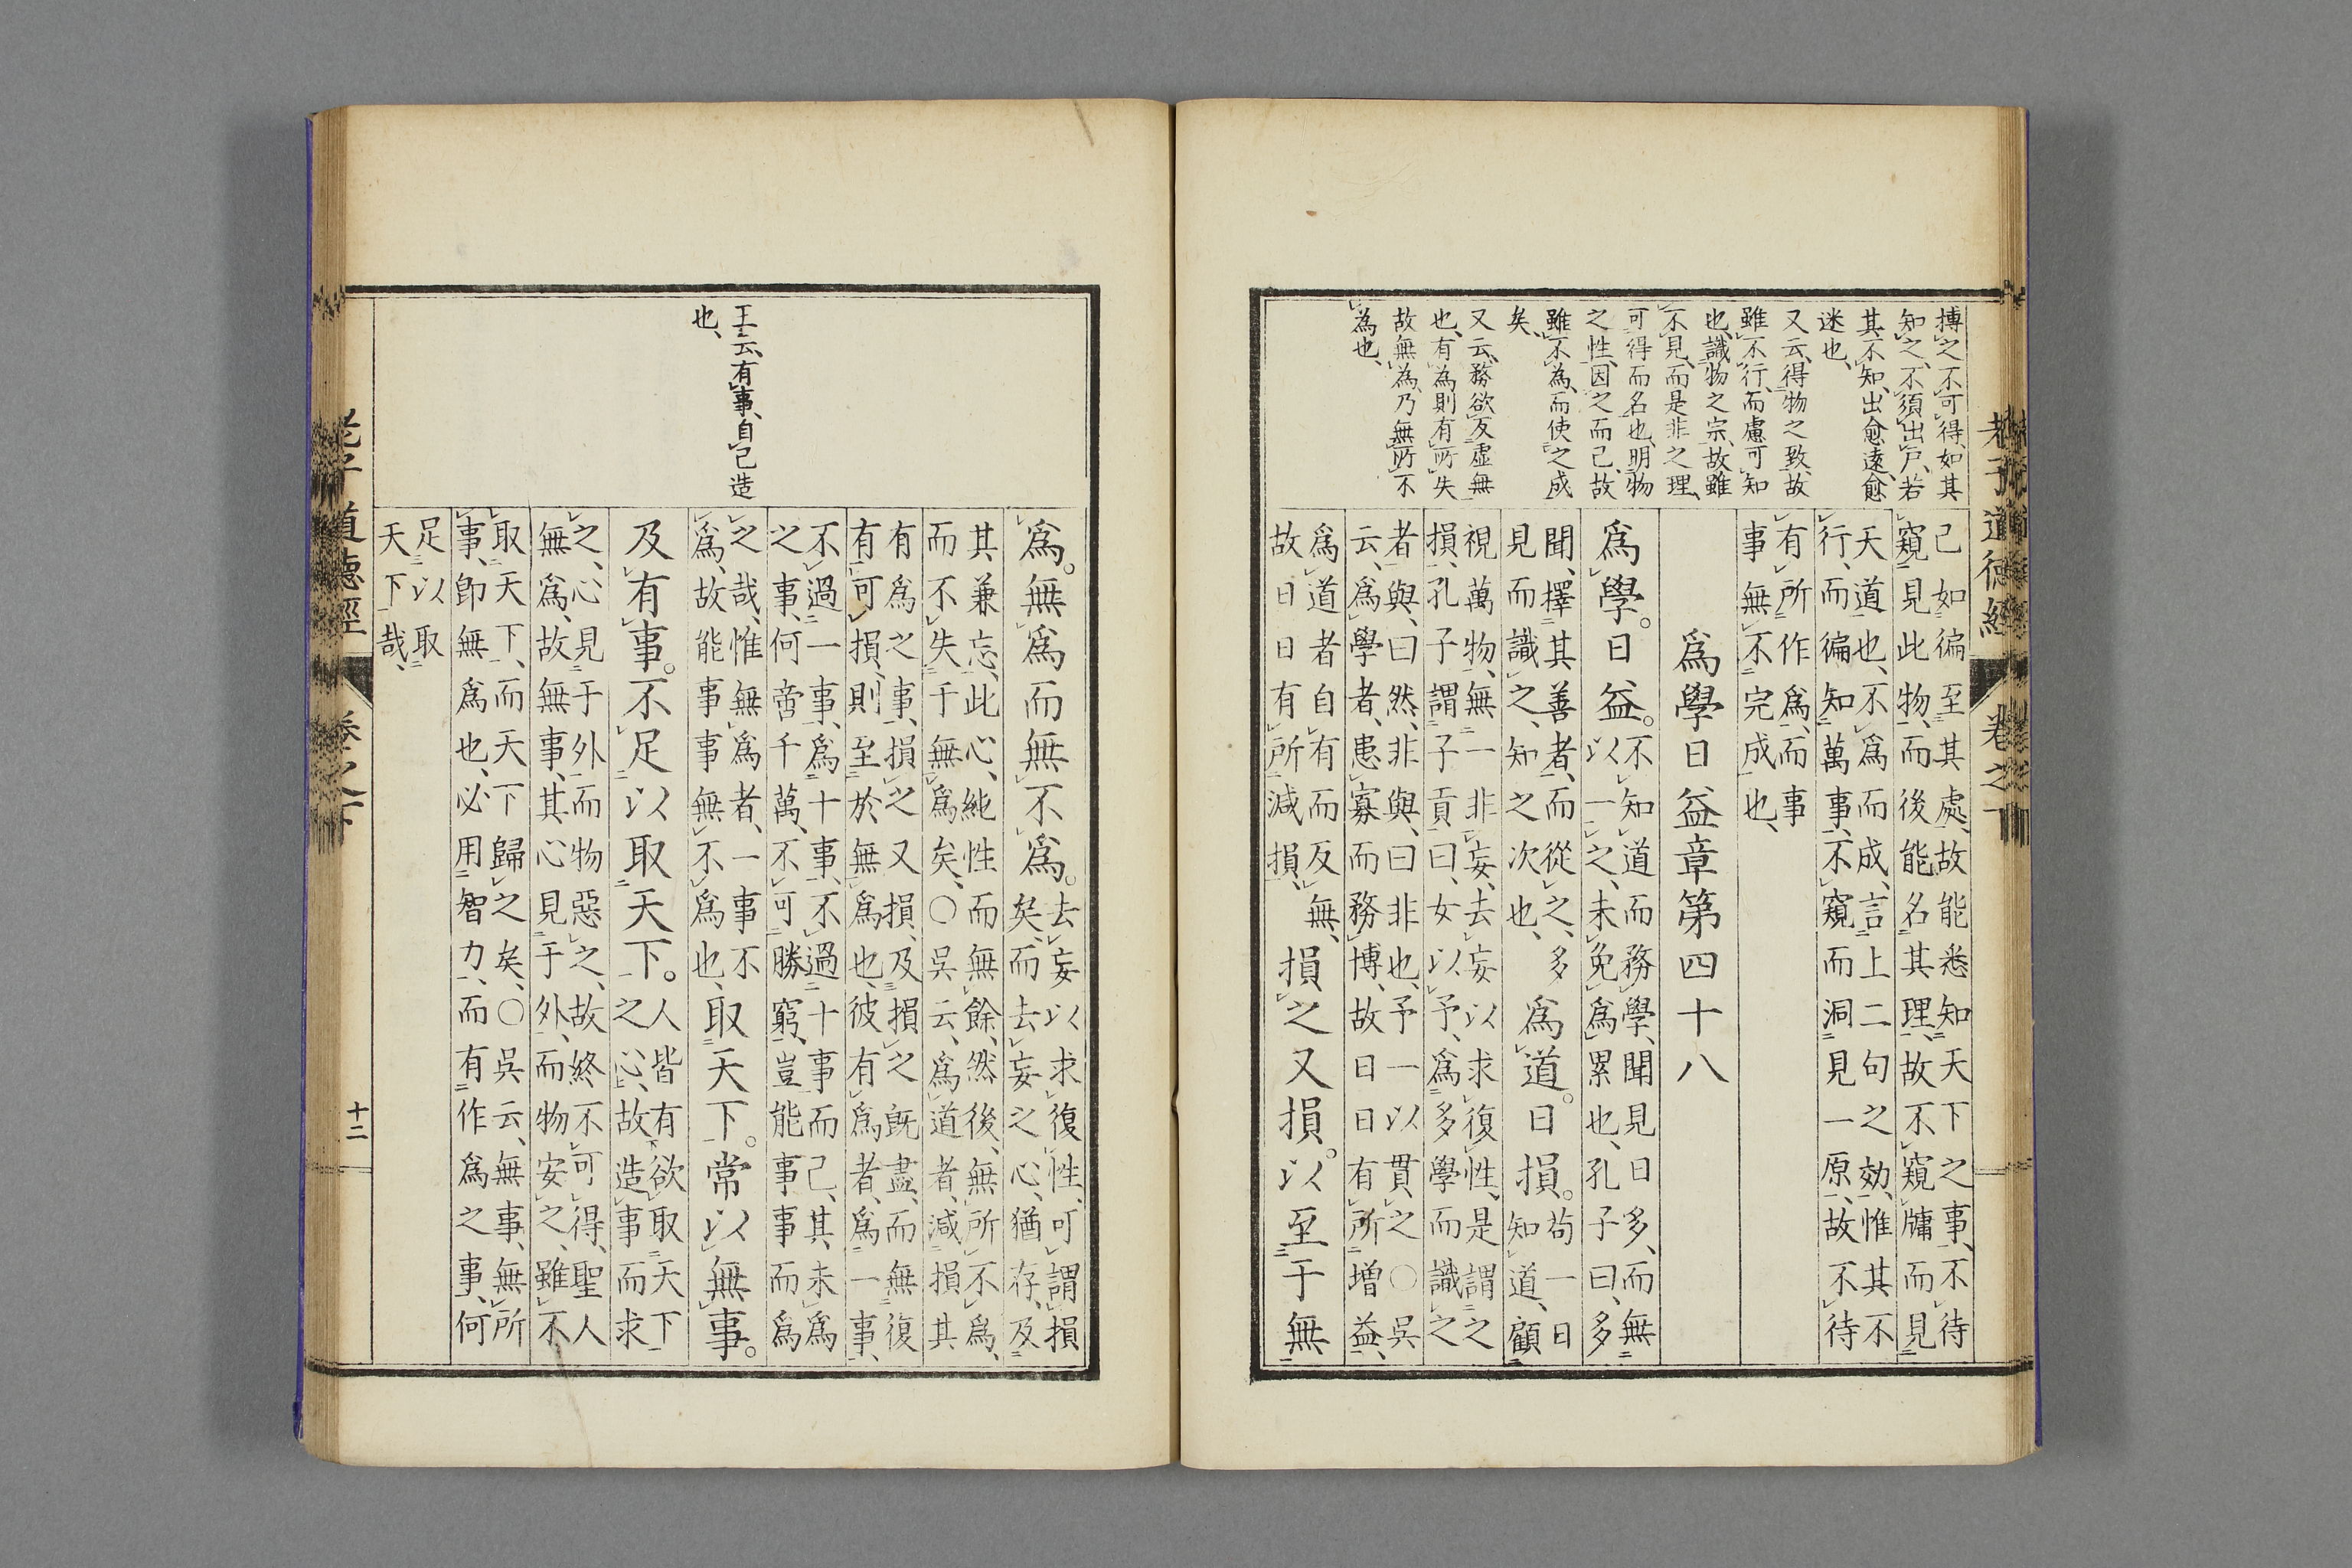 老子道德經 卷之下
搏之不可得、如其
知之、不須出戶、若
其不知、出愈遠愈
迷也、
又云、得物之致、故
雖不行、而慮可知
也、識物之宗、故雖
不見、而是非之理、
可得而名也、明物
之性、因之而已、故
雖不為、而使之成
矣、
又云、務欲反虛無
也、有為則有所失
故無為、乃無所不
為也、
己如徧至其處、故能悉知天下之事、不待
窺見此物、而後能名其理、故不窺牖而見
天道也、不爲而成、言上二句之効、惟其不
行、而徧知萬事、不窺而洞見一原、故不待
有所作爲、而事
事無不完成也、
爲學日益章第四十八
爲學。日益。不知道而務學、聞見日多、而無
以一之、未免爲累也、孔子曰、多
聞、擇其善者、而從之、多
見而識之、知之次也、
爲道。日損。苟一日
知道、顧
視萬物、無一非妄、去妄以求復性、是謂之
損、孔子謂子貢曰、女以予、爲多學而識之
者與、曰然、非與、曰非也、予一以貫之、〇吳
云、爲學者、患寡而務博、故日日有所增益、
爲道者自有而反無、
故日日有所減損、
損之又損。以至于無
王云、有事、自己造
也、
爲。無爲而無不爲。去妄以求復性、可謂損
矣、而去妄之心、猶存、及
其兼忘、此心、純性而無餘、然後、無所不爲、
而不失千無爲矣、〇吳云、爲道者、減損其
有爲之事、損之又損、及損之既盡、而無復
有可損、則至於無爲也、彼有爲者、爲一事、
不過一事、爲十事、不過十事而已、其未爲
之事、何啻千萬、不可勝窮、豈能事事而爲
之哉、惟無爲者、一事不
爲、故能事事無不爲也、
取天下。常以無事。
及有事。不足以取天下。人皆有欲取天下
之心、故造事而求
之、心見于外、而物惡之、故終不可得、聖人
無爲、故無事、其心見于外、而物安之、雖不
取天下、而天下歸之矣、〇吳云、無事、無所
事、卽無爲也、必用智力、而有作爲之事、何
足以取
天下哉、
老子道德經 卷之下 十二